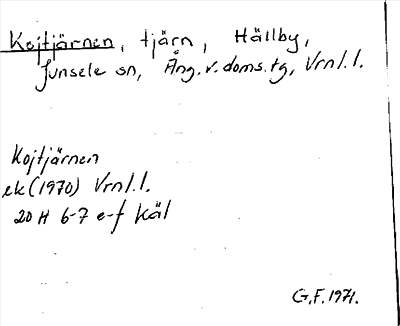 Kojtjärnen, tjärn, Hällby,
Junsele sn, Ång. v. doms. tg, Vrnl. l.
Kojtjärnen
ek (1970) Vrnl. l.
20 H 6-7 e-f Käl
G.F. 1971.